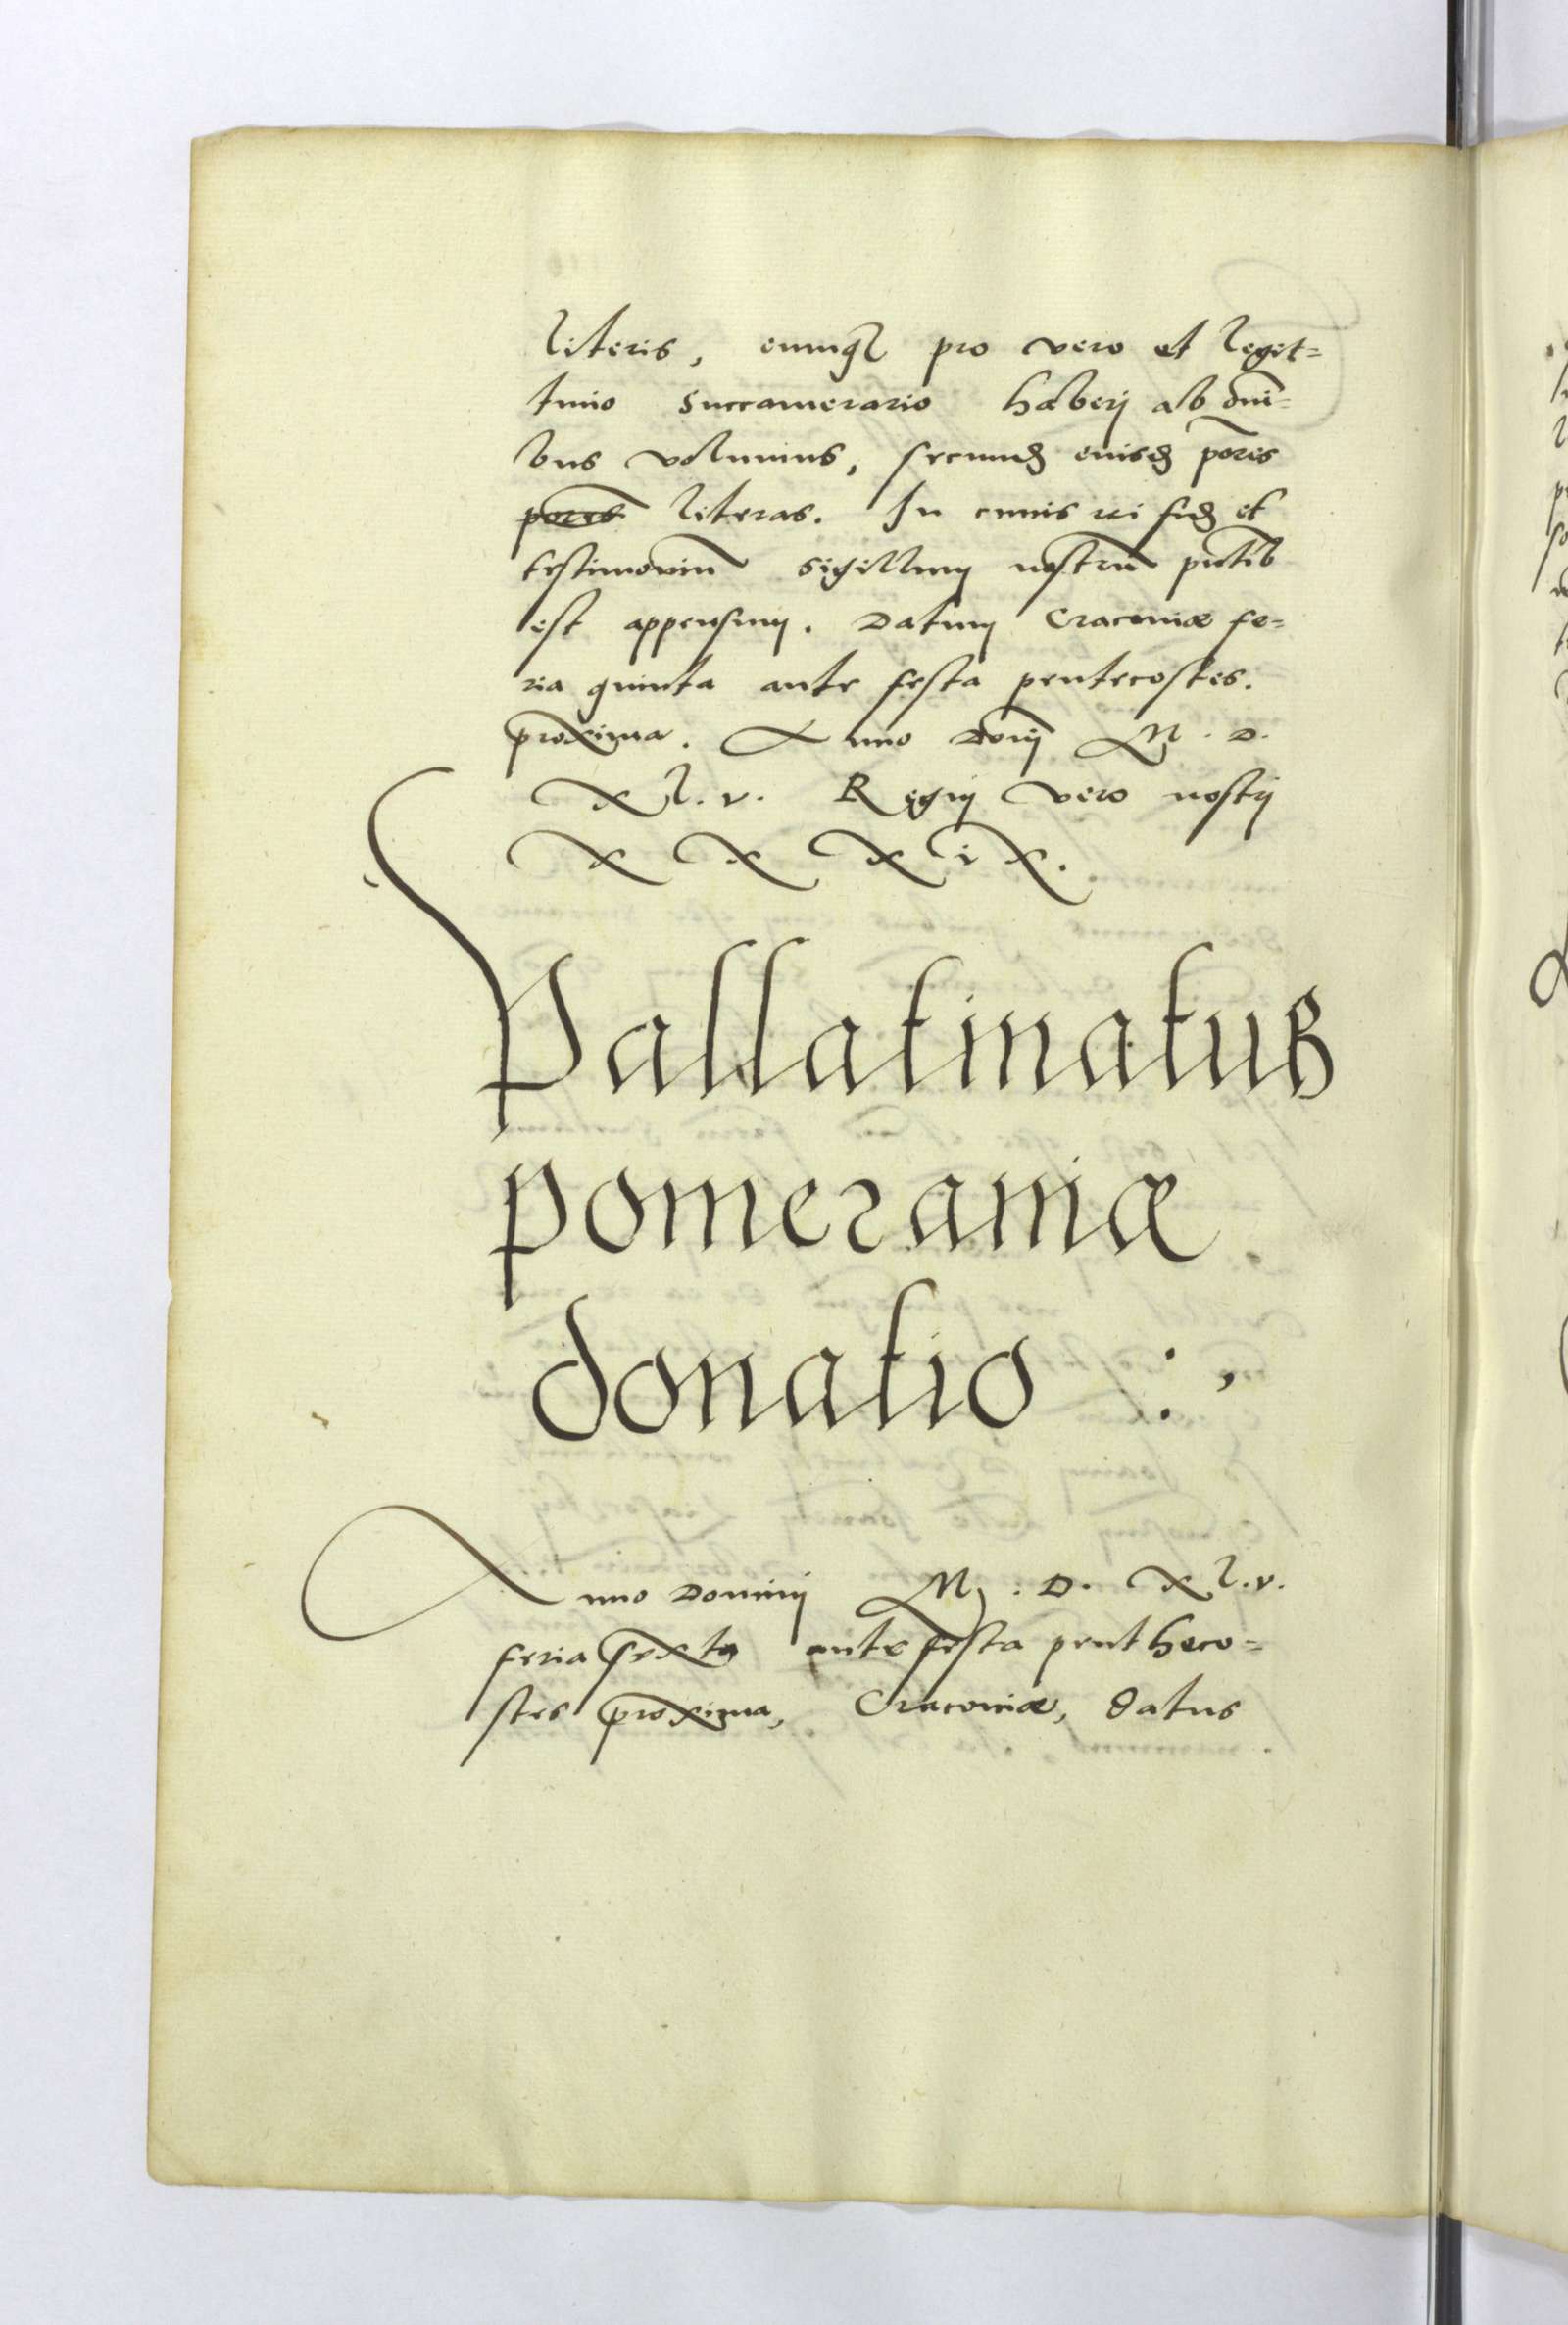 literis, eumq₃ pro vero et legit=
timo Succamerario haberj ab om̄i=
bus volumus, secund₃ euisd₃ p̄ores
p̄ores literas. In cuuis rei fid₃ et
testimoniu̅ sigillum nostru̅ pn̄tib
est appensum. Datum Cracouiæ fe=
ria quinta ante festa pentecostes.
proxima. Anno Domj M. D.
XL.v. Regnj vero nostrj
XXXIX.
Pallatinatus
pomeraniæ
donatio :,
Anno Dominj M. D. XL.v.
feria sexta ante festa pentheco=
stes proxima, Cracouiæ, datus